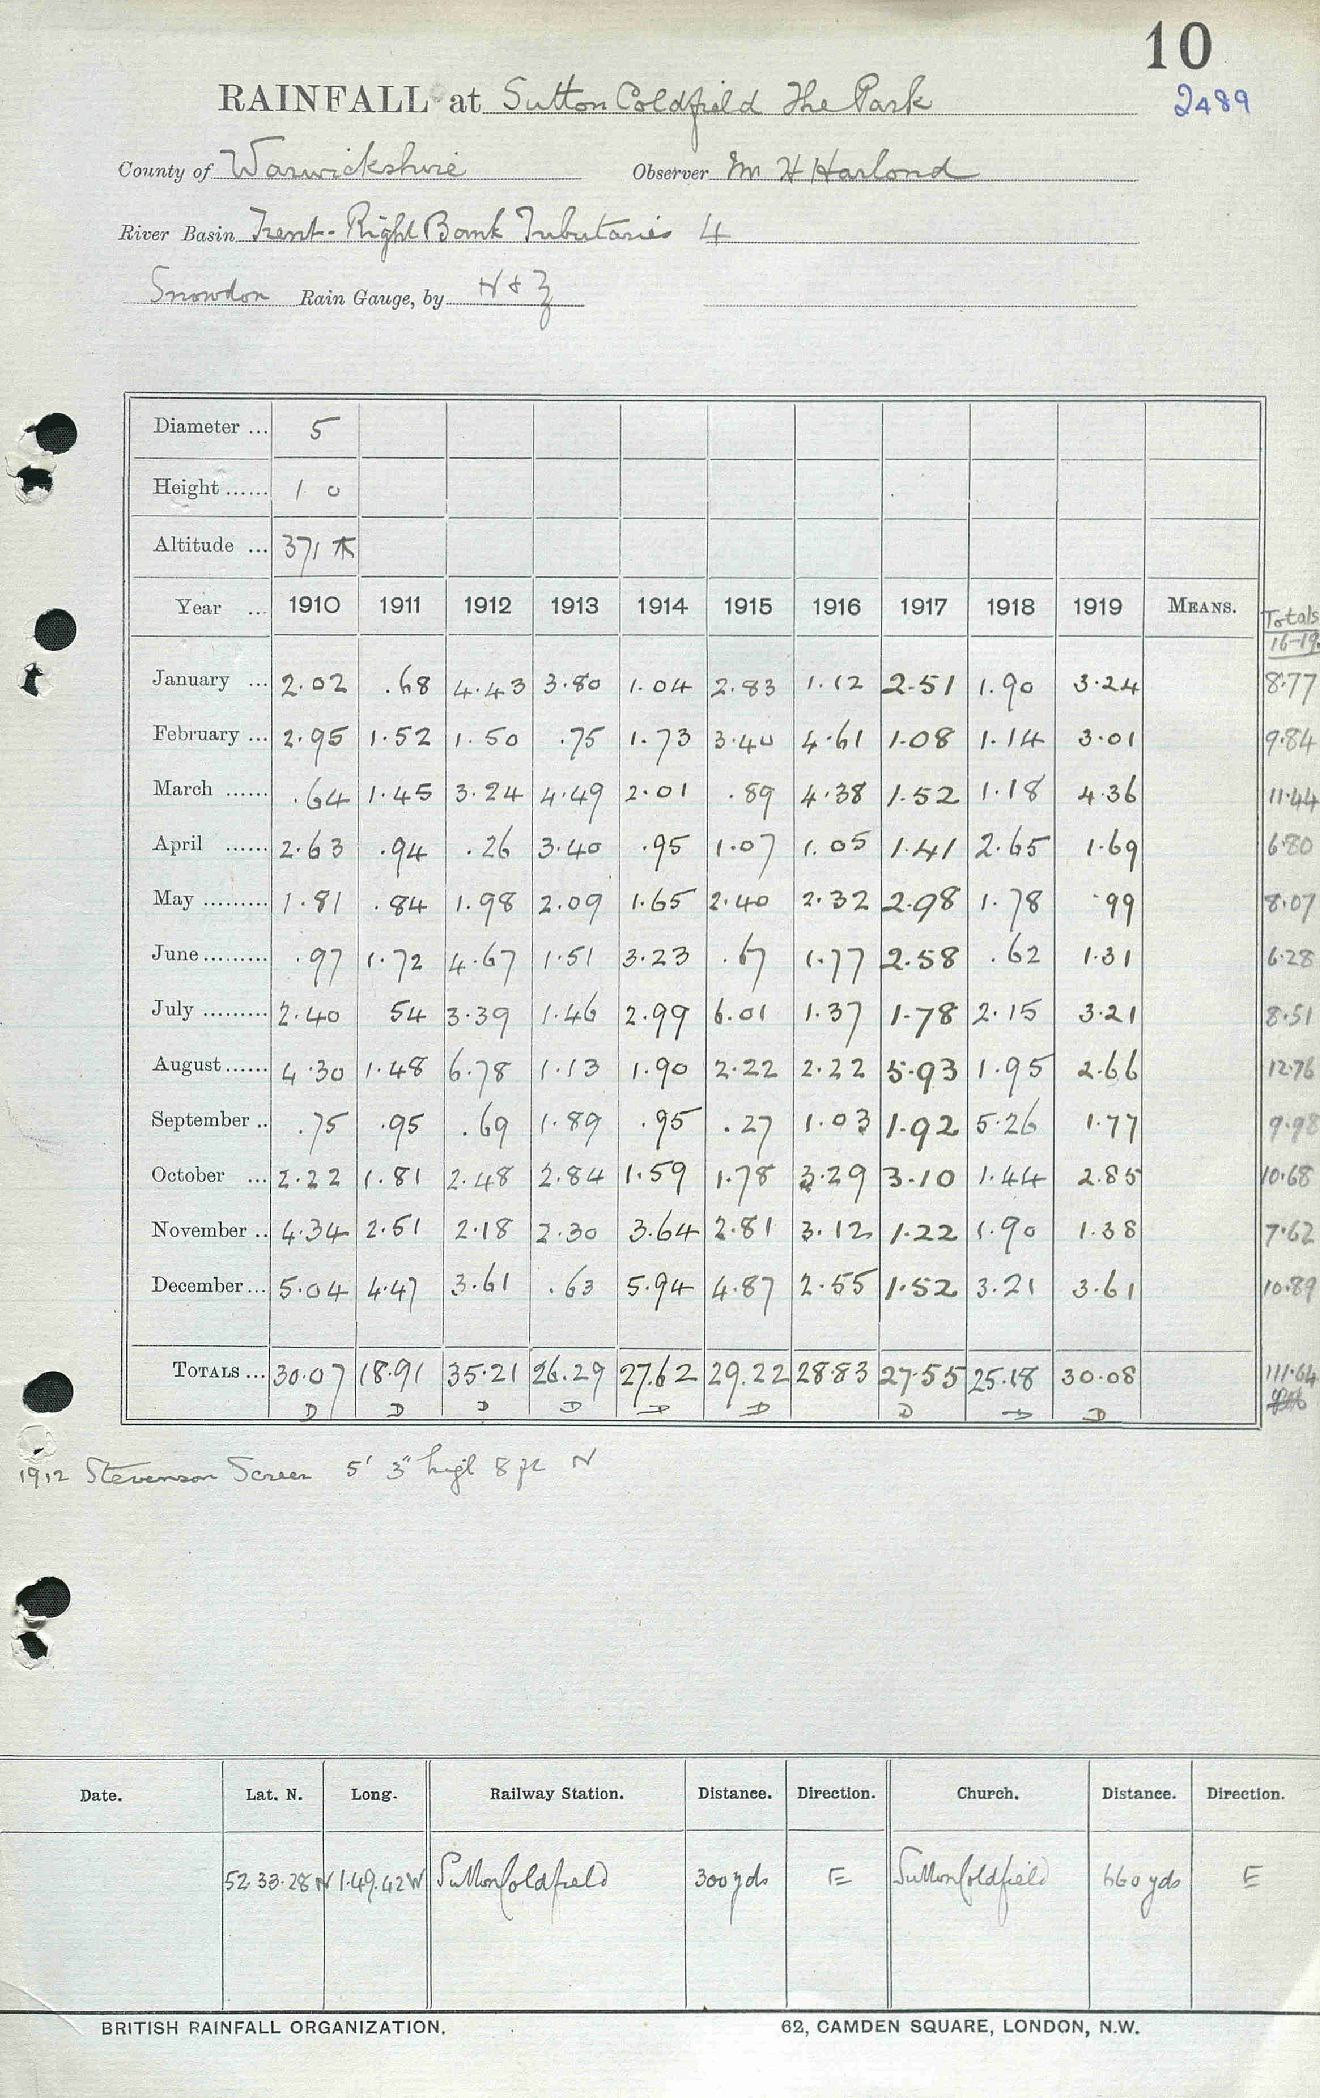 10
RAINFALL at Sutton Coldfield The Park
2489
County of Warwickshire Observer M H Harlond
River Basin Trent - Right Bank Tributaries 4
Snowdon Rain Gauge, by N & Z
Diameter ... 5
Height ...... 1 0
Altitude ... 371
Year ... 1910 1911 1912 1913 1914 1915 1916 1917 1918 1919 MEANS. Totals 16-19
January ... 2.02 .68 4.43 3.80 1.04 2.83 1.12 2.51 1.90 3.24 8.77
February ... 2.95 1.52 1.50 .75 1.73 3.40 4.61 1.08 1.14 3.01 9.84
March ...... .64 1.45 3.24 4.49 2.01 .89 4.38 1.52 1.18 4.36 11.44
April ...... 2.63 .94 .26 3.40 .95 1.07 1.05 1.41 2.65 1.69 6.80
May ......... 1.81 .84 1.98 2.09 1.65 2.40 2.32 2.98 1.78 .99 8.07
June ......... .97 1.72 4.67 1.51 3.23 .67 1.77 2.58 .62 1.31 6.28
July ......... 2.40 54 3.39 1.46 2.99 6.01 1.37 1.78 2.15 3.21 8.51
August ...... 4.30 1.48 6.78 1.13 1.90 2.22 2.22 5.93 1.95 2.66 12.76
September .. .75 .95 .69 1.89 .95 .27 1.03 1.92 5.26 1.77 9.98
October ... 2.22 1.81 2.48 2.84 1.59 1.78 3.29 3.10 1.44 2.85 10.68
November .. 4.34 2.51 2.18 2.30 3.64 2.81 3.12 1.22 1.90 1.38 7.62
December ... 5.04 4.47 3.61 .63 5.94 4.87 2.55 1.52 3.21 3.61 10.89
TOTALS ... 30.07 18.91 35.21 26.29 27.62 29.22 28.83 27.55 25.18 30.08 111.64
D D D D D D D D D
1912 Stevenson Screen 5' 3" high 8 ft N
Date. Lat. N. Long. Railway Station. Distance. Direction. Church. Distance. Direction.
52 33.28 N 1.49.42 W Sutton Coldfield 300 yds E Sutton Coldfield 660 yds E
BRITISH RAINFALL ORGANIZATION. 62, CAMDEN SQUARE, LONDON, N.W.